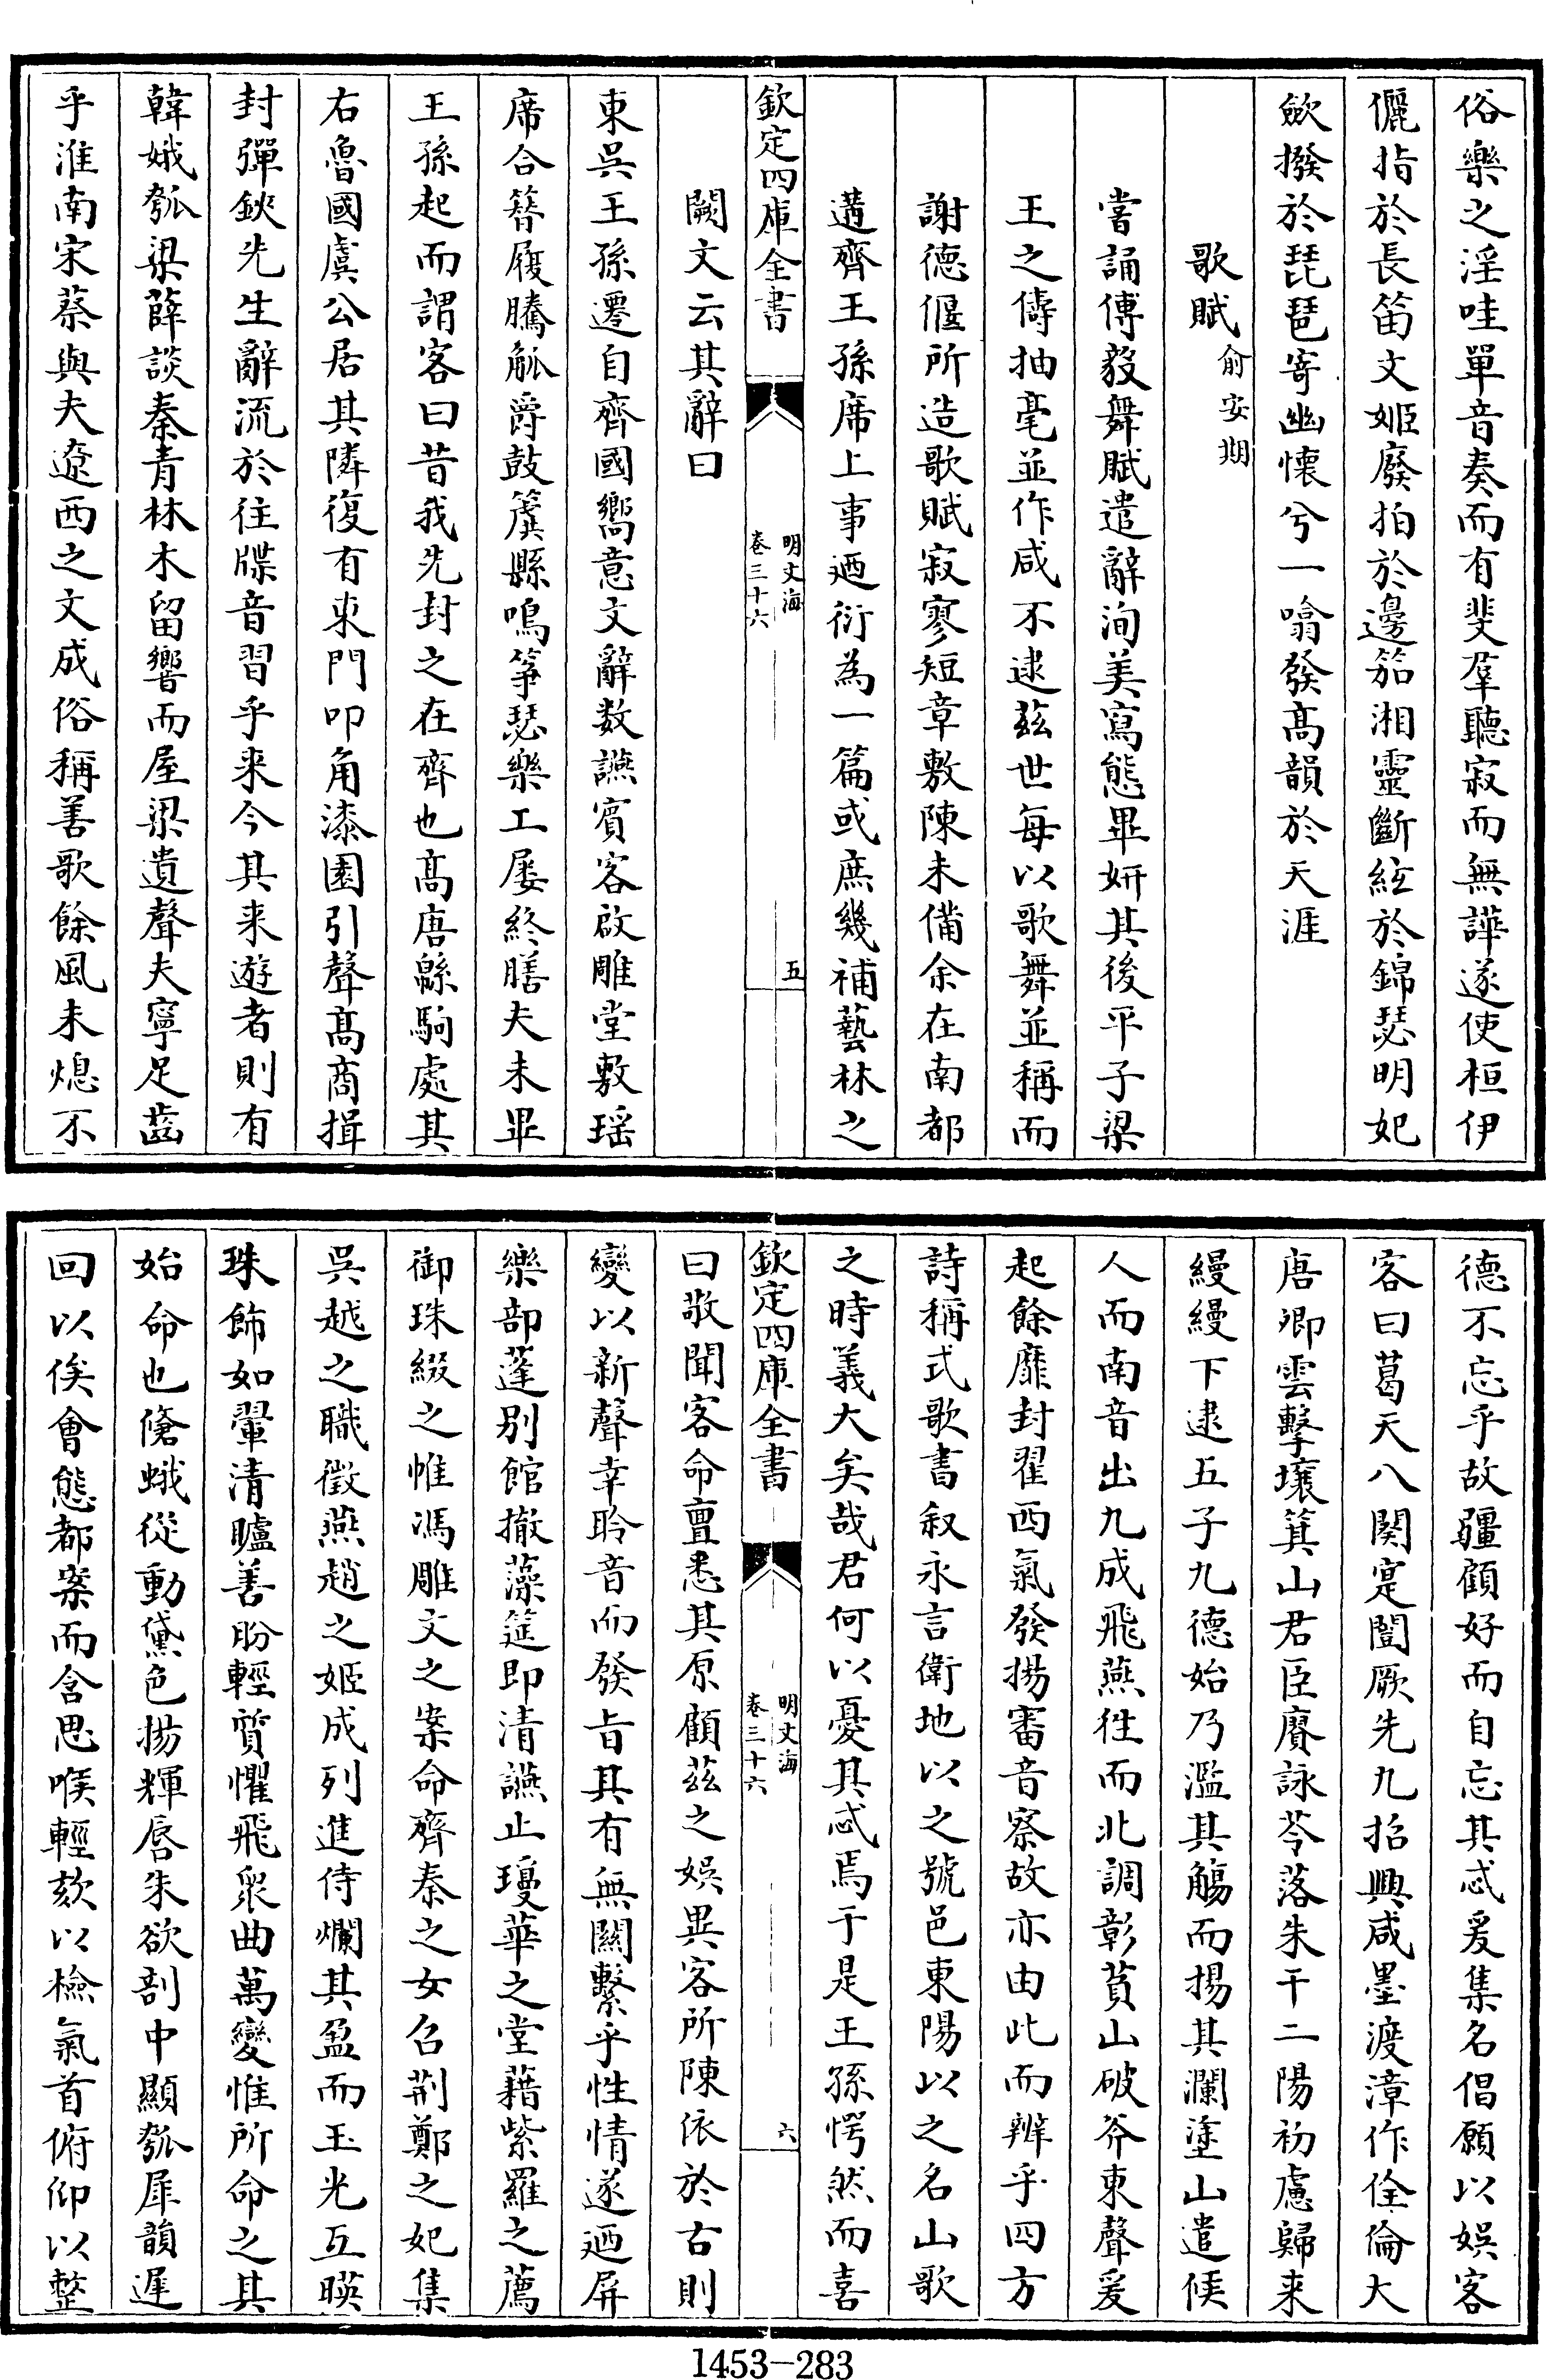 俗樂之淫哇單音奏而有斐羣聽寂而無譁遂使桓伊
儷指於長笛文姬廢拍於邊笳湘靈斷絃於錦瑟明妃
歛撥於琵琶寄幽懷兮一噏發髙韻於天涯
歌賦俞安期
嘗誦傅毅舞賦遣辭洵美寫態畢妍其後平子梁
王之儔抽毫並作咸不逮茲世每以歌舞並稱而
謝德偃所造歌賦寂寥短章敷陳未備余在南都
遘齊王孫席上事廼衍為一篇或庶幾補藝林之
欽定四庫全書
明文海
卷三十六
五
闕文云其辭曰
東吳王孫遷自齊國嚮意文辭数讌賓客啟雕堂敷瑶
席合簪履騰觚爵鼓簴縣鳴箏瑟樂工屡終膳夫未畢
王孫起而謂客曰昔我先封之在齊也髙唐緜駒處其
右魯國虞公居其隣復有東門叩角漆園引聲髙商揖
封彈鋏先生辭流於往牒音習乎来今其来遊者則有
韓娥瓠梁薛談秦青林木留響而屋梁遺聲夫寧足齒
乎淮南宋蔡與夫遼西之文成俗稱善歌餘風未熄不
德不忘乎故疆顧好而自忘其忒爰集名倡願以娯客
客曰葛天八闋寔闓厥先九招興咸墨渡漳作佺倫大
唐卿雲擊壤箕山君臣賡詠苓落朱干二陽初慮歸来
縵縵下逮五子九德始乃濫其觴而揚其瀾塗山遣候
人而南音出九成飛燕徃而北調彰萯山破斧東聲爰
起餘靡封翟西氣發揚審音察故亦由此而辨乎四方
詩稱式歌書叙永言衛地以之號邑東陽以之名山歌
之時義大矣哉君何以憂其忒焉于是王孫愕然而喜
欽定四庫全書
明文海
卷三十六
六
曰敬聞客命亶悉其原顧茲之娯異客所陳依於古則
變以新聲幸聆音而發旨其有無關繫乎性情遂廼屏
樂部蓬別館撤藻筵即清讌止瓊華之堂藉紫羅之薦
御珠綴之帷馮雕文之案命齊秦之女召荆鄭之妃集
吳越之職徵燕趙之姬成列進侍爛其盈而玉光互暎
珠飾如翬清矑善盼輕質懼飛衆曲萬變惟所命之其
始命也翛蛾從動黛色揚輝唇朱欲剖中顯瓠犀韻遲
回以俟會態都宷而含思喉輕欬以檢氣首俯仰以整
1453—283